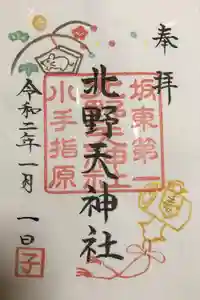 奉拝
坂東第一
北野天神社
小手指原
令和二年一月一日
子